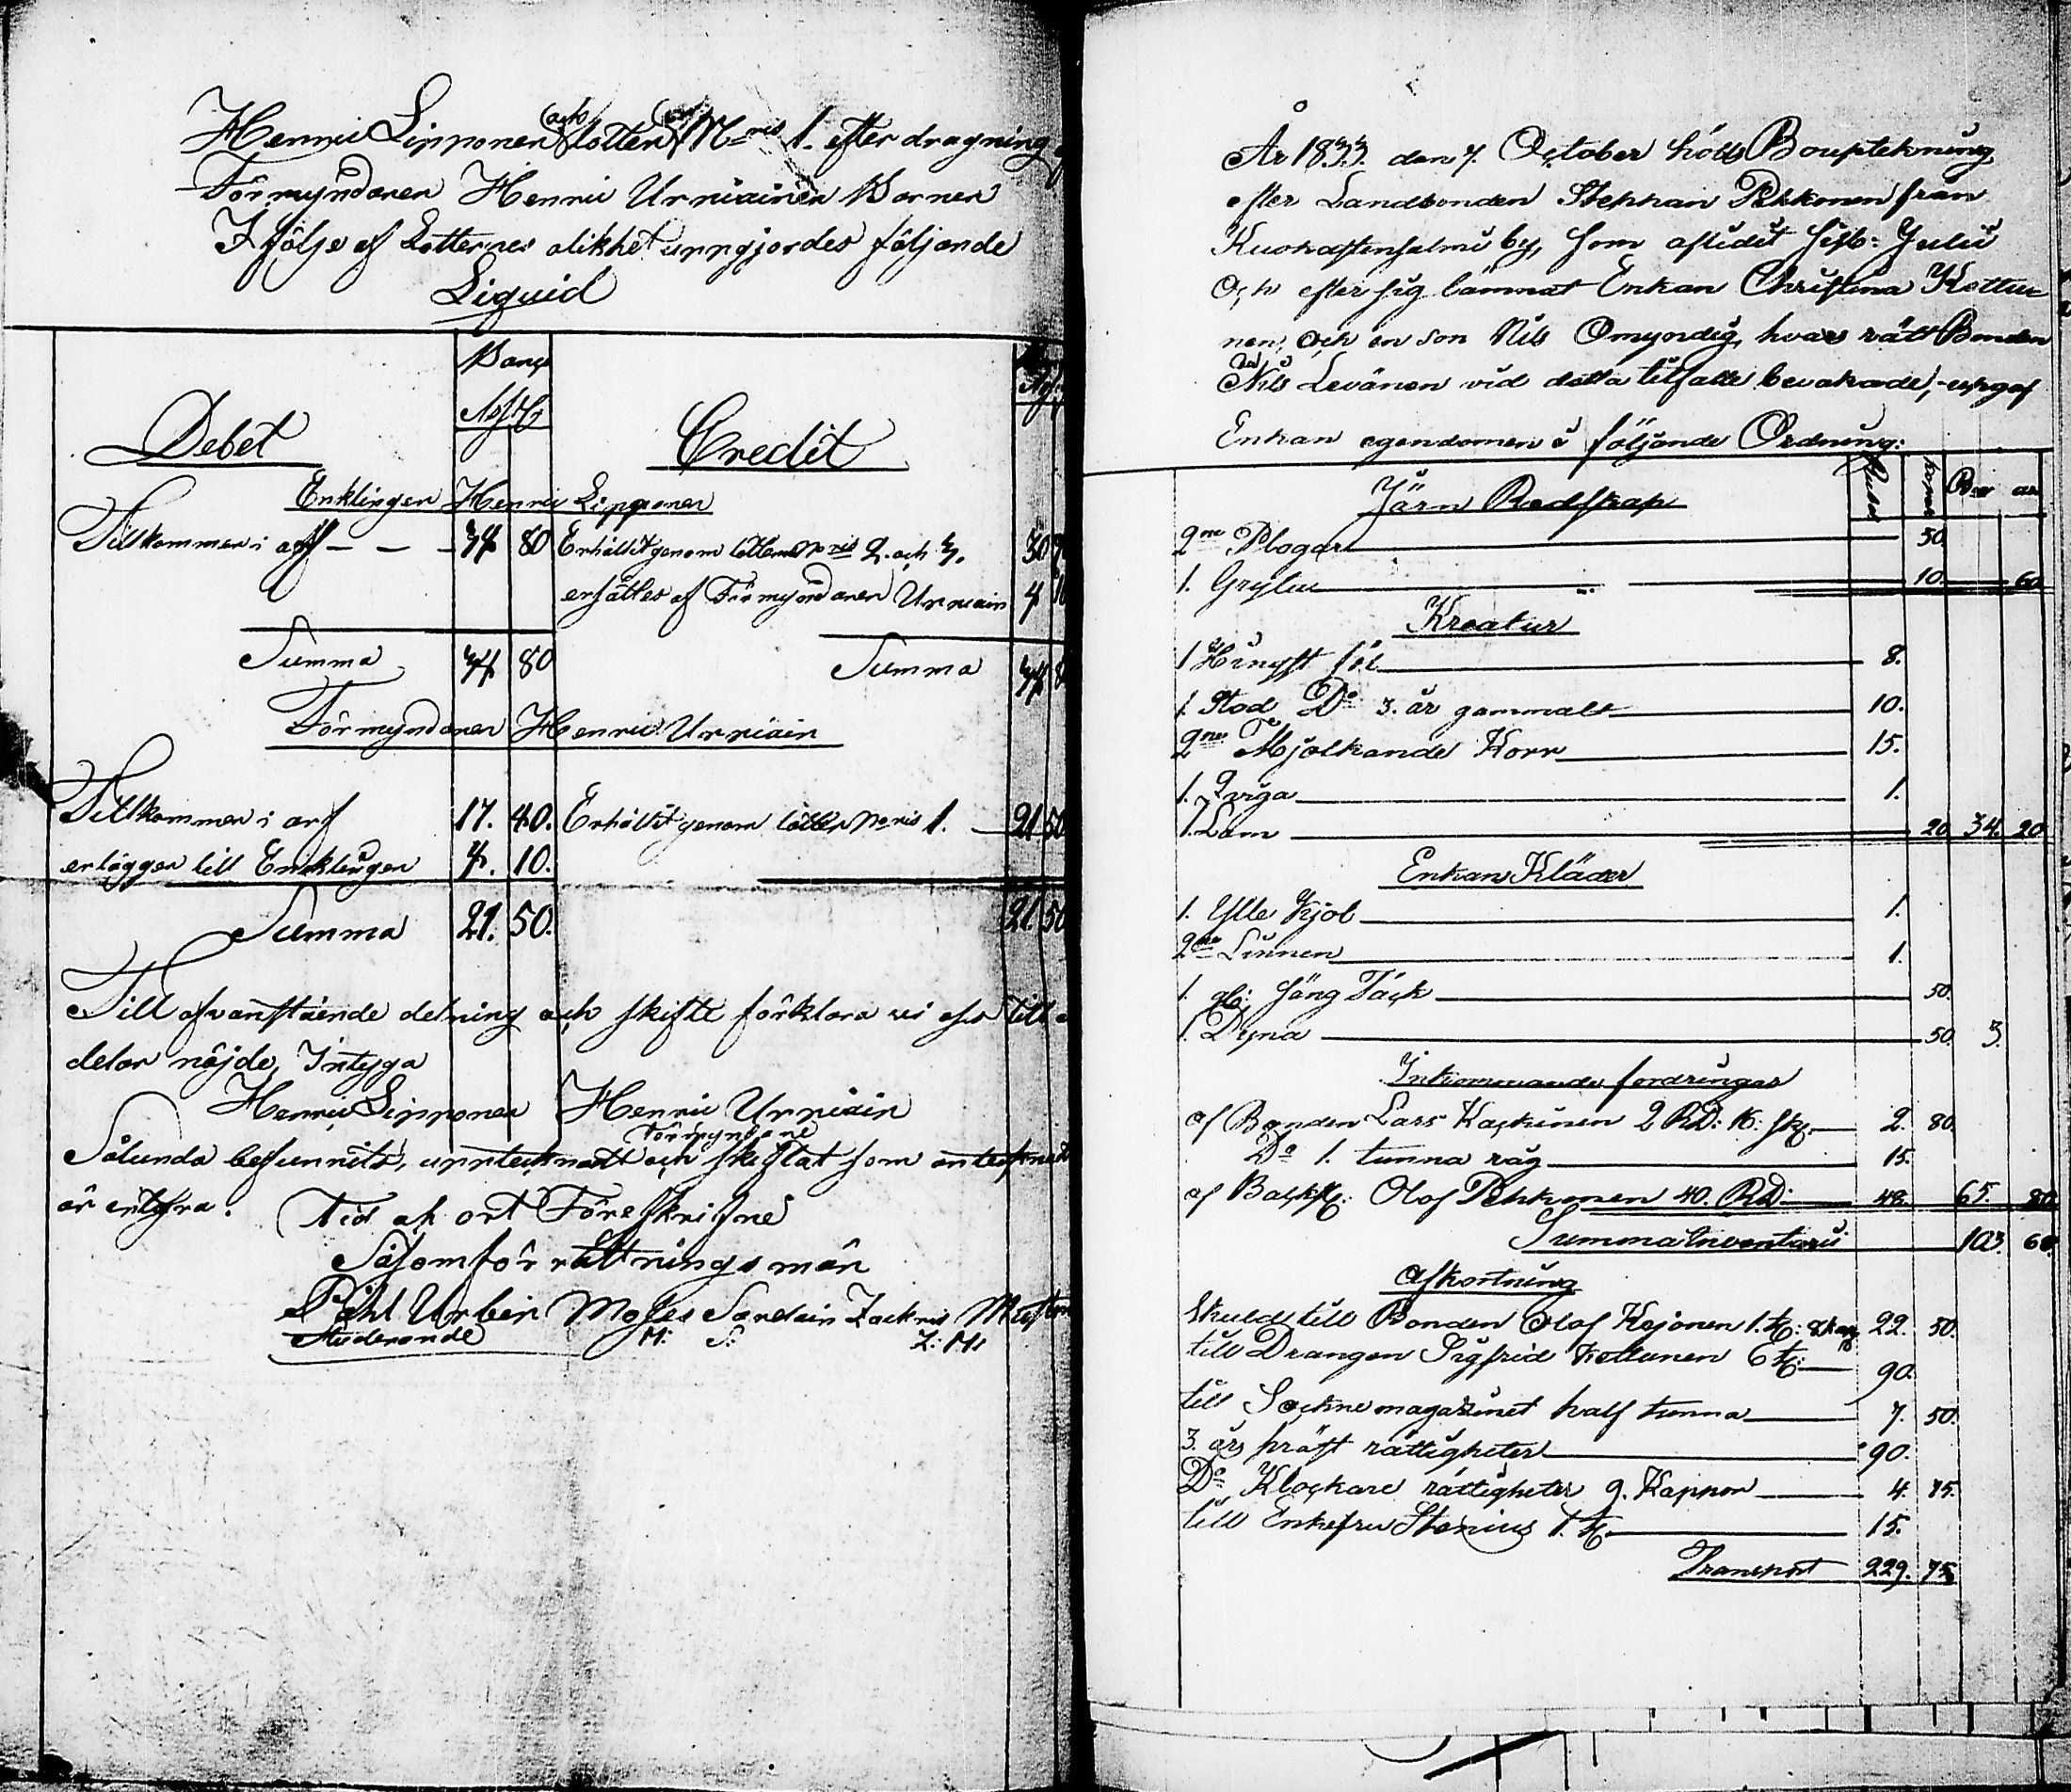 Henric Lipponen och lotten N ris 1. efter dragning
Förmyndaren Henric Urniainen Barnen
I följe af Lotternes olikhet uppgjordes följande
Liquid
Debet
Banco
Credit
Enklingen Henric Lipponen
Tillkommer i arf - - - 34 80 Erhållit genom lotterne N ris 2. och 3. 30
ersättes af Förmyndaren Urniain 4
Summa 34 80 Summa 34
Förmyndaren Henric Urniain
Tillkommer i arf 17. 40. Erhållit genom lotten N ris 1. 21 50
erlägger till Enklingen 4. 10.
Summa 21. 50. 21. 50
Till ofvanstående delning och skifte förklara vi oss till
delar nöjde, Intyga
Henric Lipponen Henric Urniain
Förmyndare
Sålunda befunnits, upptecknadt och skiftat som antecknadt
är intyga.
Tid och ort Föreskrifne
Såsom förrättningsmän
Påhl Urbin Moses Sardain Zachris
Studerande M: S: Z: M:
År 1833. den 7. October hölls Bouptekning
efter Landbonden Stephan Pekkonen från
by, som aflidit sistl: Julii
Och efter sig lämnat Enkan Christina Kottu-
nen, och en son Nils Omyndig, hvars rätt Bonden
Nils Levänen vid detta tillfälle bevakade, upgaf
Enkan egendomen i följande Ordning:
Järn Redskap Rubel Kopek B:co as.
2ne Plogar 50.
1. Gryta 10. 60
Kreatur
1 Hingst föl 8.
1. Stod Do 3. år gammalt 10.
2ne Mjölkande Kor 15.
1. Qviga 1.
1. Lam 20. 34. 20
Enkans Kläder
1. Ylle Kjol 1.
2ne Linnen 1.
1. gl: Säng Täck 50.
1. Dyna 50. 3.
Inkommande fordringar
af Bonden Lars Kaskinen 2 RD: 16: sk. 2. 80.
Do 1. tunna råg 15.
af Olof Pekkonen 40. RD: 48. 65. 80
Summa Inventarii 103. 60
Afkortning
Skulds till Bonden Olof Kejonen 22. 50.
till Drängen Sigfrid Kottunen 6 90.
till Sockne magazinet half tunna 7. 50.
3. års präst rättigheter 90.
Do Klockare rättigheter 9. Kappor 4. 75.
till Enkefru Stenius 1. 15.
Transport 229. 75